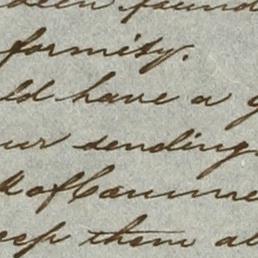 been found
formity.
ld have a g
ur sending
k of Comme
eep them al